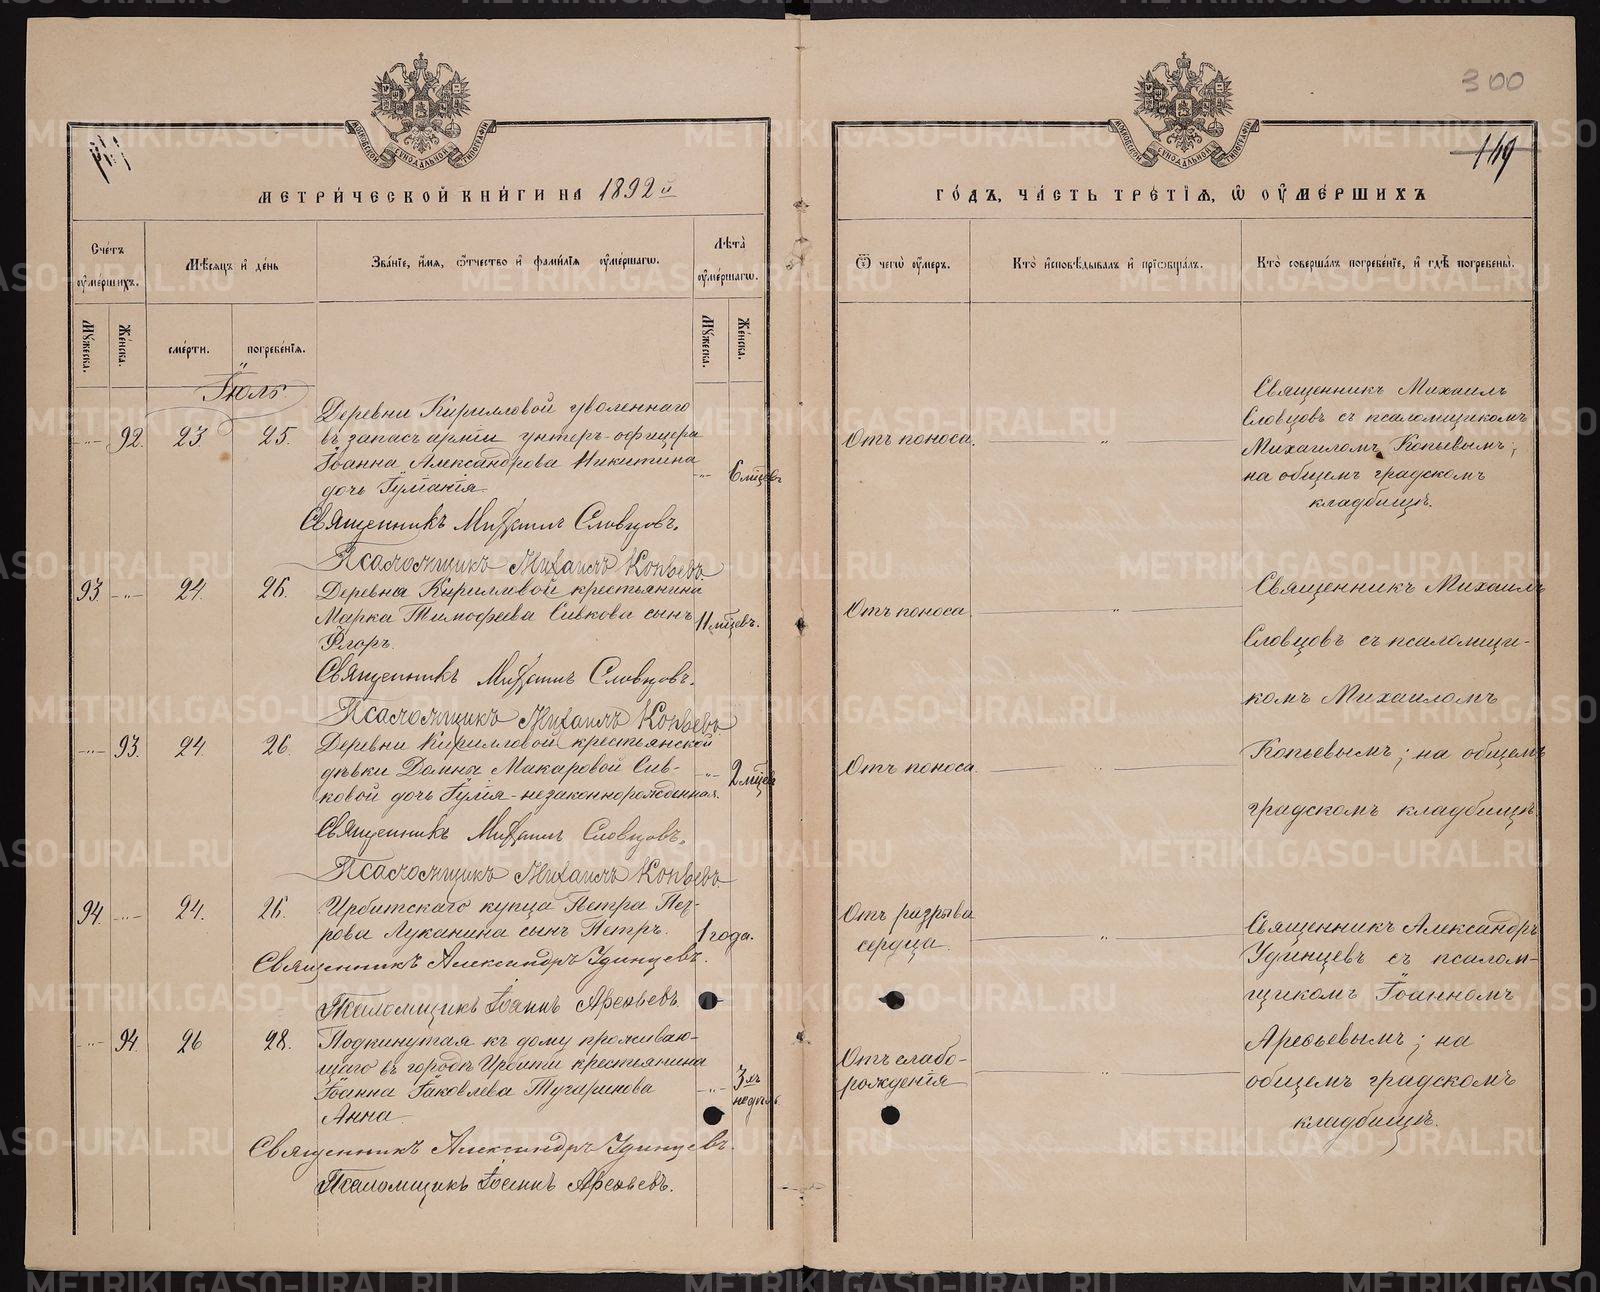 300
149
МЕТРИЧЕСКОЙ КНИГИ НА 1892й
ГОДЪ, ЧАСТЬ ТРЕТІЯ, Ѡ ОУМЕРШИХЪ
Счетъ оумершихъ.
Мѣсяцъ и день
Званіе, имя, ѿчество и фамилія оумершагѡ.
Лѣта оумершагѡ.
Ѿ чегѡ оумеръ.
Кто исповѣдывалъ и пріѡбщалъ.
Кто совершалъ погребеніе, и гдѣ погребены.
Мужеска.
Женска.
смерти.
погребенія.
Мужеска.
Женска.
Іюль
92. 23 25.
Деревни Кирилловой уволеннаго
въ запасъ арміи унтеръ-офицера
Іоанна Александрова Никитина
дочь Іуліанія.
6 мѣсцевъ
Отъ поноса.
Священникъ Михаилъ
Словцовъ съ псаломщикомъ
Михаиломъ Копьевымъ;
на общемъ градскомъ
кладбищѣ.
Священникъ Михаилъ Словцовъ.
Псаломщикъ Михаилъ Копьевъ
93. 24. 26.
Деревни Кирилловой крестьянина
Марка Тимофеева Сивкова сынъ
Егоръ.
11 мѣсцевъ.
Отъ поноса.
Священникъ Михаилъ Словцовъ.
Псаломщикъ Михаилъ Копьевъ
93. 24 26.
Деревни Кирилловой крестьянской
дѣвки Домны Макаровой Сив-
ковой дочь Іулія-незаконнорожденная.
2 мѣсцев
Отъ поноса
Священникъ Михаилъ
Словцовъ съ псаломщи-
комъ Михаиломъ
Копьевымъ; на общемъ
градскомъ кладбищѣ.
Священникъ Михаилъ Словцовъ.
Псаломщикъ Михаилъ Копьевъ
94. 24. 26.
Ирбитскаго купца Петра Пет-
рова Луканина сынъ Петръ.
1 года.
Отъ разрыва
сердца.
Священникъ Александръ Удинцевъ.
Псаломщикъ Іоаннъ Арефьевъ.
94. 26 28.
Подкинутая къ дому прожаваю-
щаго въ городѣ Ирбити крестьянина
Іоанна Іаковлева Тугаринова
Анна
3хъ
недѣль
Отъ слабо-
рожденія
Священникъ Александръ
Удинцевъ съ псалом-
щикомъ Іоанномъ
Арефьевымъ; на
общемъ градскомъ
кладбищѣ.
Священникъ Александръ Удинцевъ.
Псаломщикъ Іоаннъ Арефьевъ.
METRIKI.GASO-URAL.RU